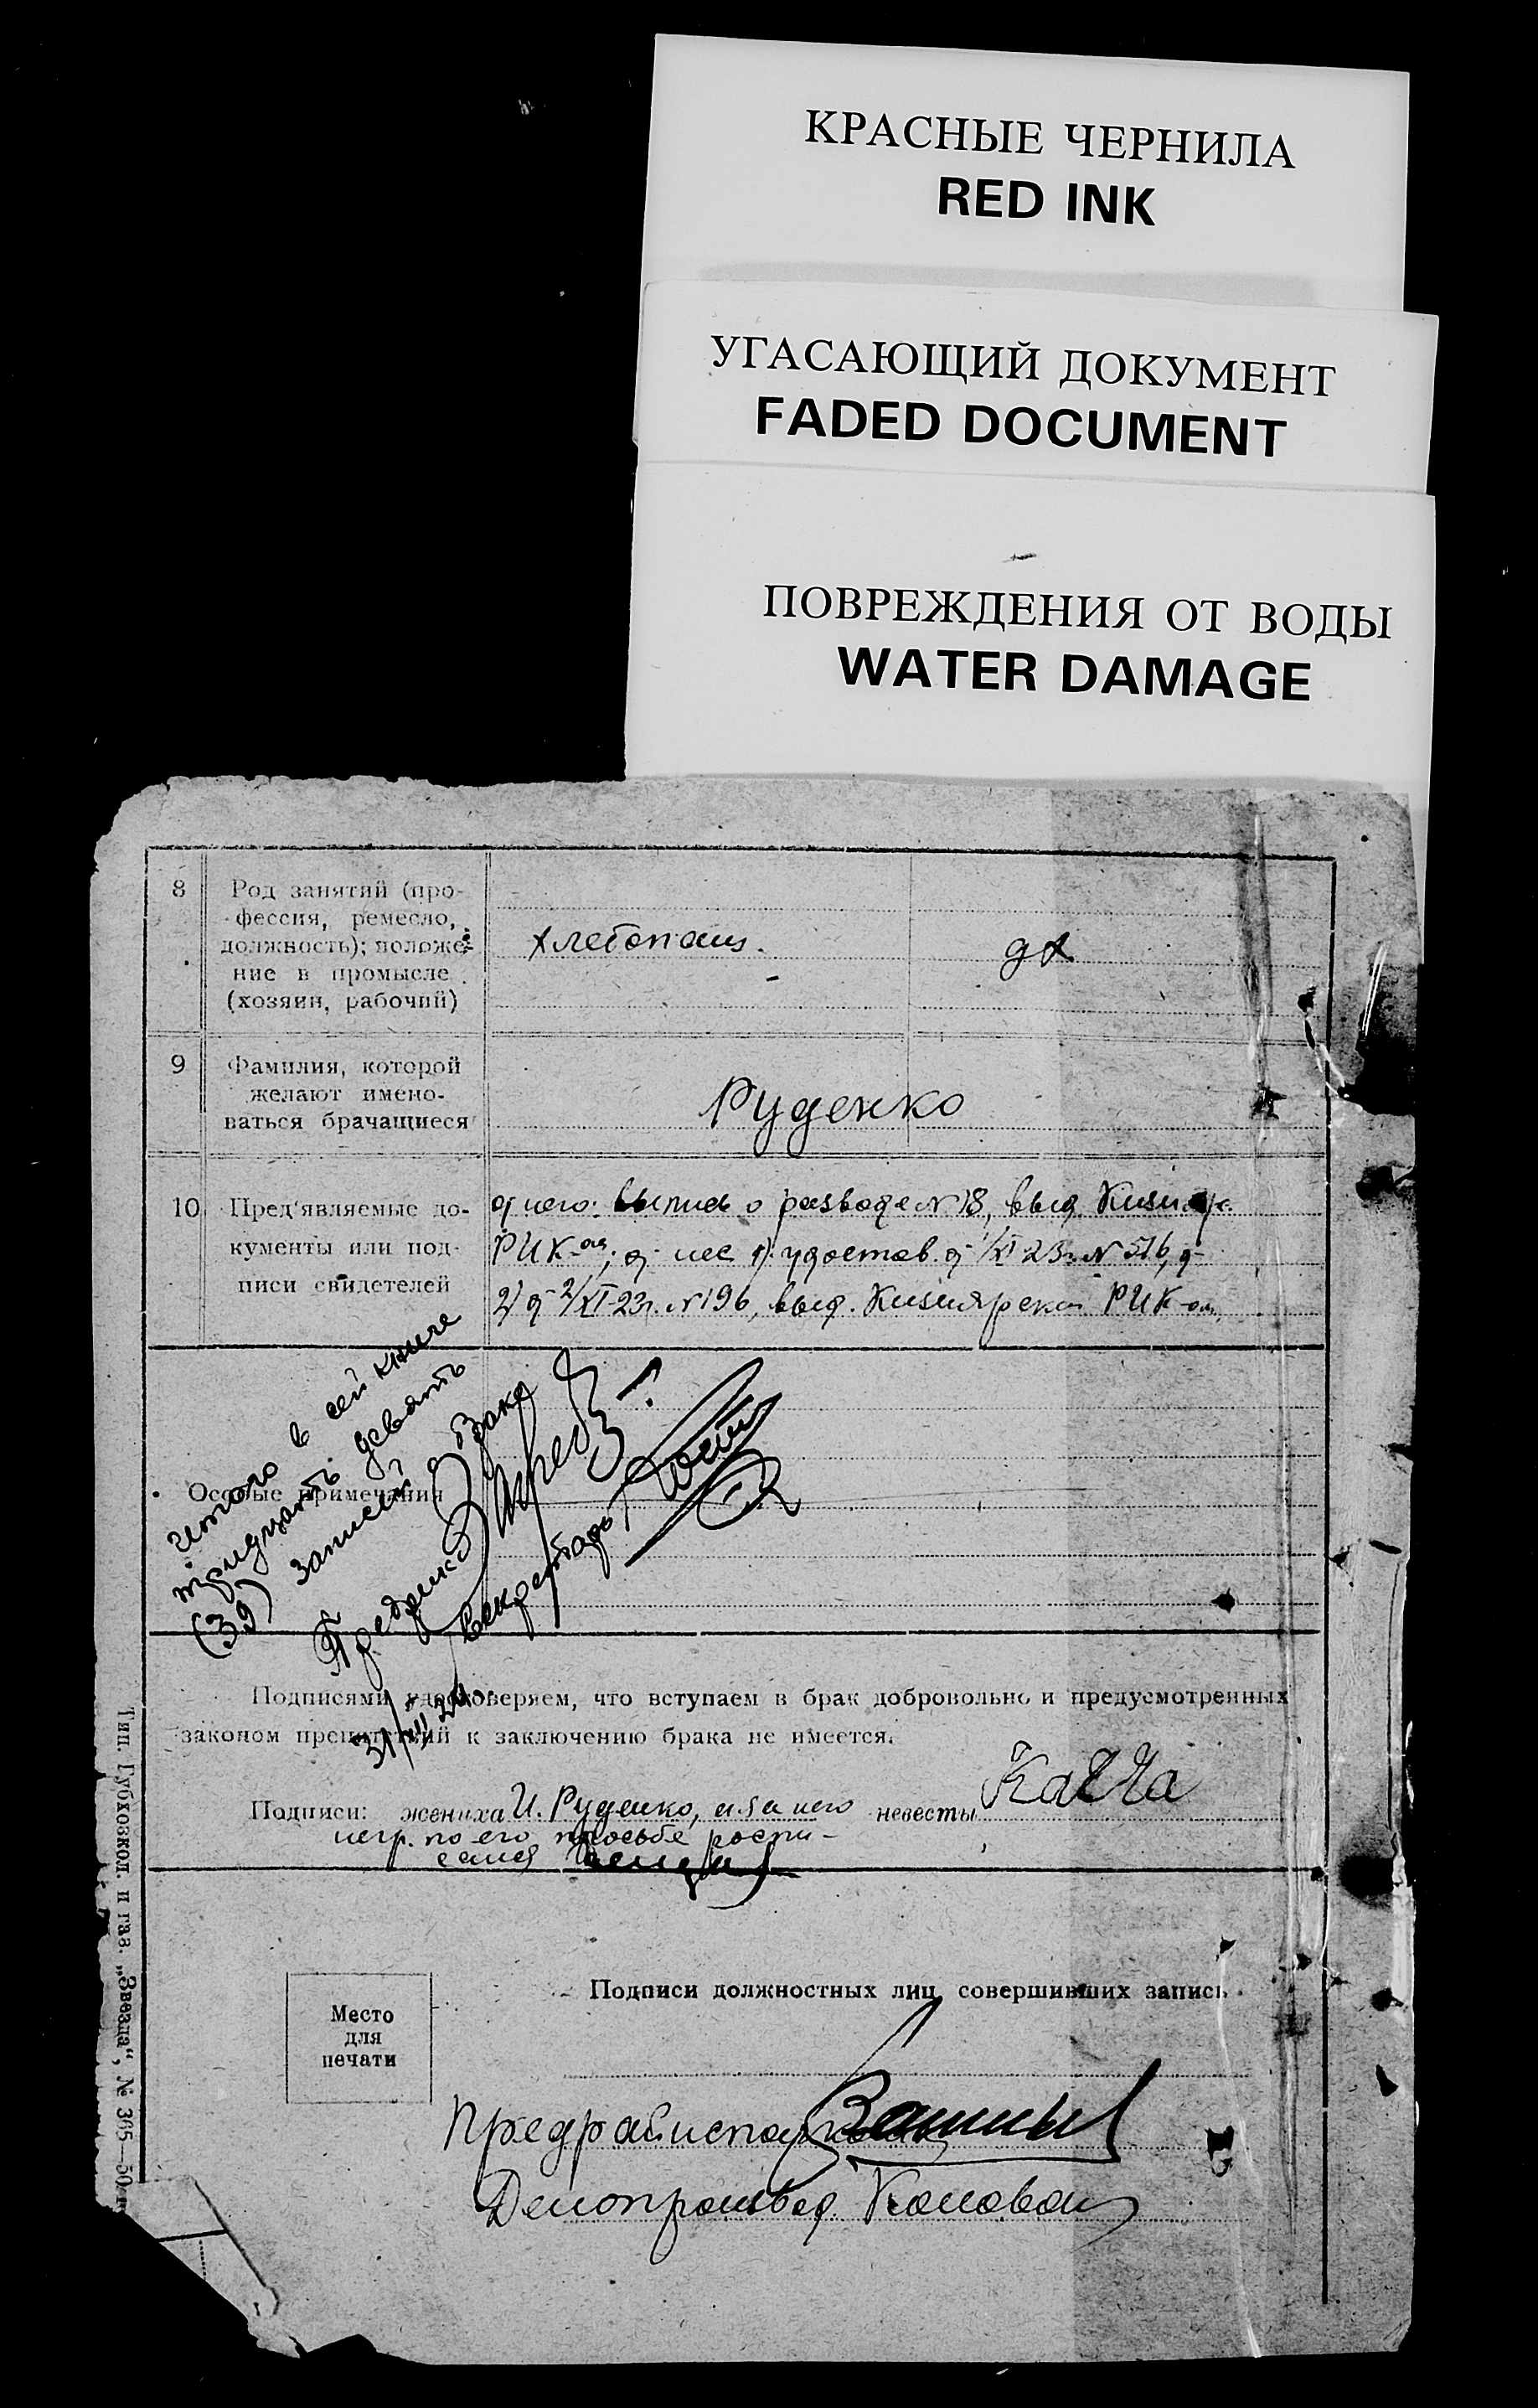 КРАСНЫЕ ЧЕРНИЛА
RED INK
УГАСАЮЩИЙ ДОКУМЕНТ
FADED DOCUMENT
ПОВРЕЖДЕНИЯ ОТ ВОДЫ
WATER DAMAGE
8
Род занятий (про-
фессия, ремесло,
должность); положе-
ние в промысле
(хозяин, рабочий)
хлебопаш.
9
Фамилия, которой
желают имено-
ваться брачащиеся
Руденко
10
Пред'являемые до-
кументы или под-
писи свидетелей
от него: выпись о разводе № 18, выд.
РИК-ом; от нее 1) удостов. от 1/XI-23г. № 516,
2) от 2/XI-23г. № 196, выд. Кизиярским РИК-ом.
Особые примечания
Итого в сей книге
тридцать девять
(39) записей о браке
Секретарь
31/III 24г.
Подписями удостоверяем, что вступаем в брак добровольно и предусмотренных
законом препятствий к заключению брака не имеется.
Подписи: жениха И. Руденко, а за него невесты
негр. по его просьбе распи-
сался
Место
для
печати
Подписи должностных лиц, совершивших запись
Делопроизвод.
Тип. Губхозкол. и газ. „Звезда“, № 365—50